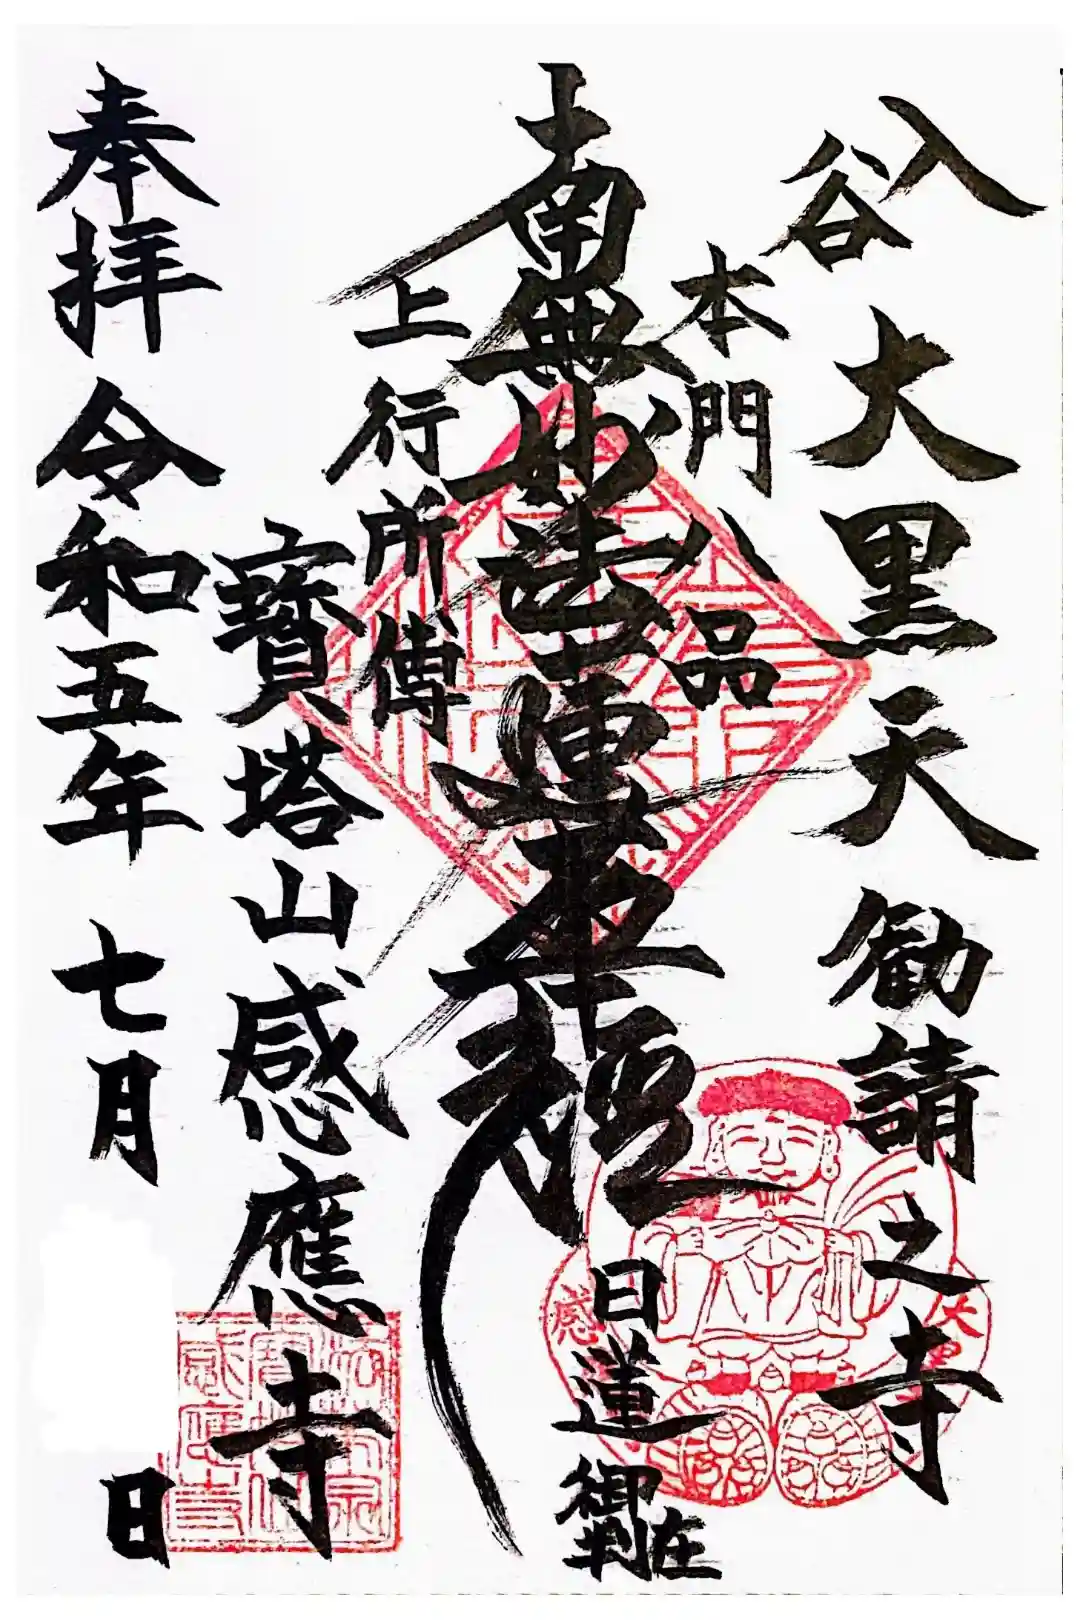 入谷大黒天勧請之寺
本門八品
南無妙法蓮華経
日蓮
在御判
上行所傳
寳塔山感應寺
奉拝令和五年七月日
感
大黒